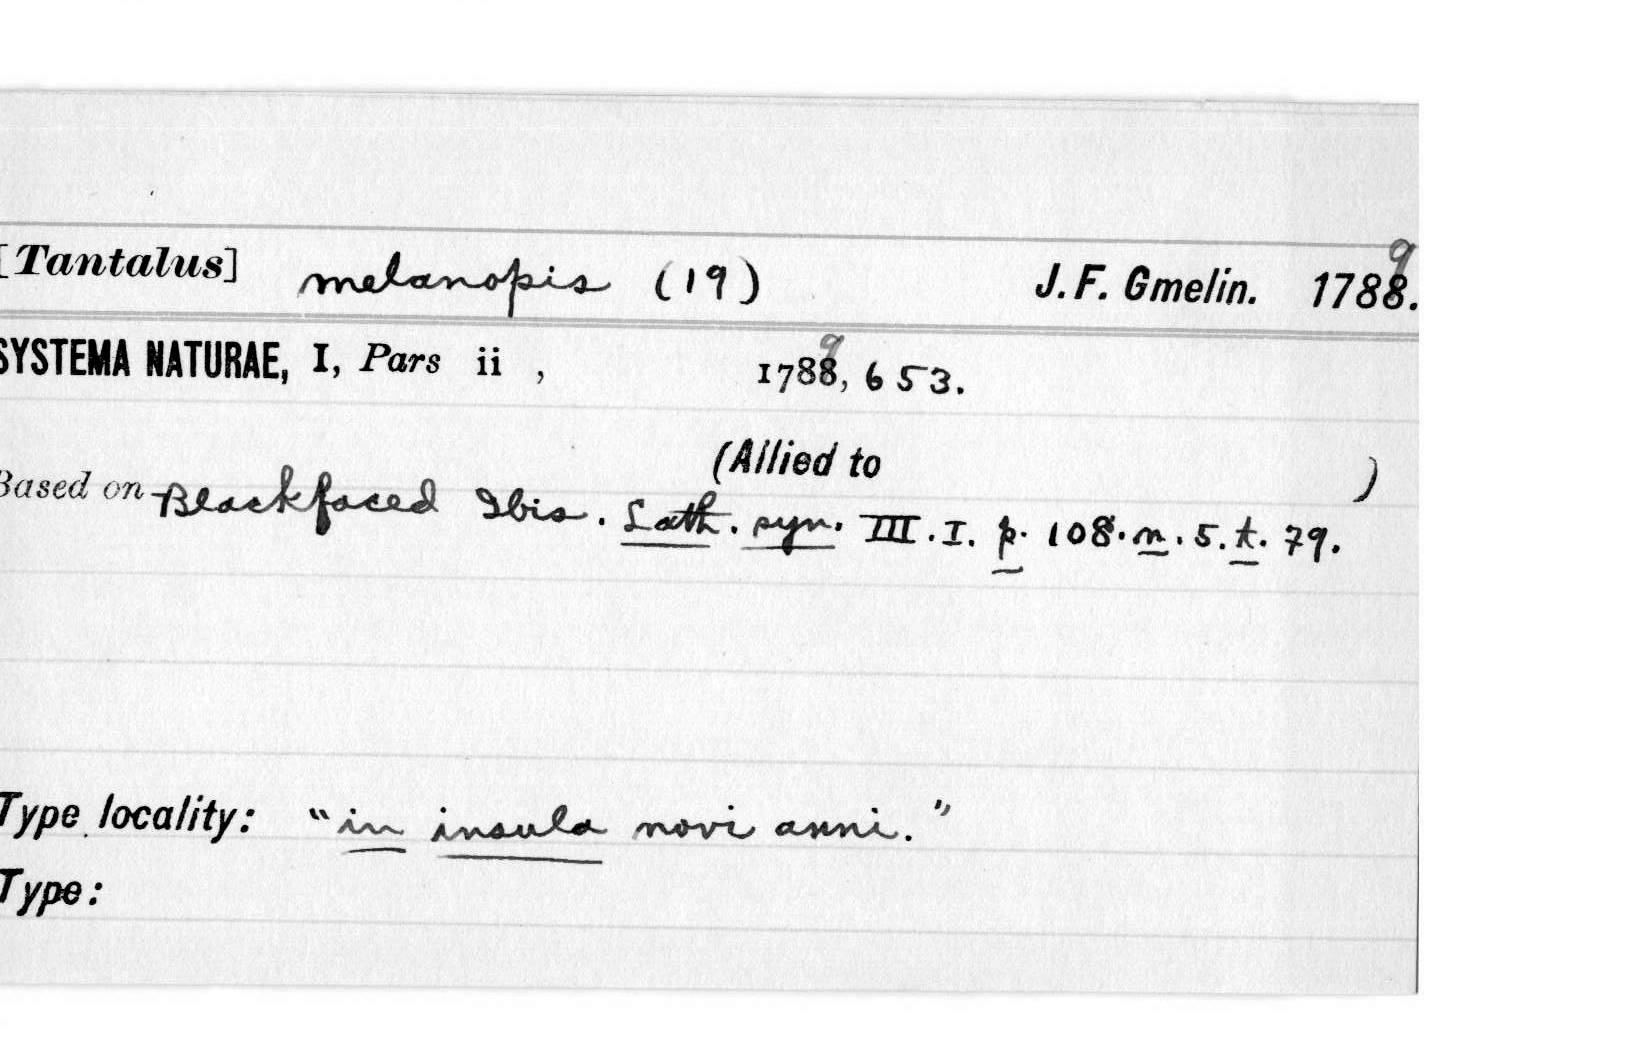 [Tantalus] melanopis (19) J. F. Gmelin. 1788. 9
SYSTEMA NATURAE, I, Pars ii , 1788, 9 653.
(Allied to )
Based on Blackfaced Ibis. Lath. syn. III. I. p. 108. n. 5. t. 79.
Type locality: "in insula novi anni."
Type: